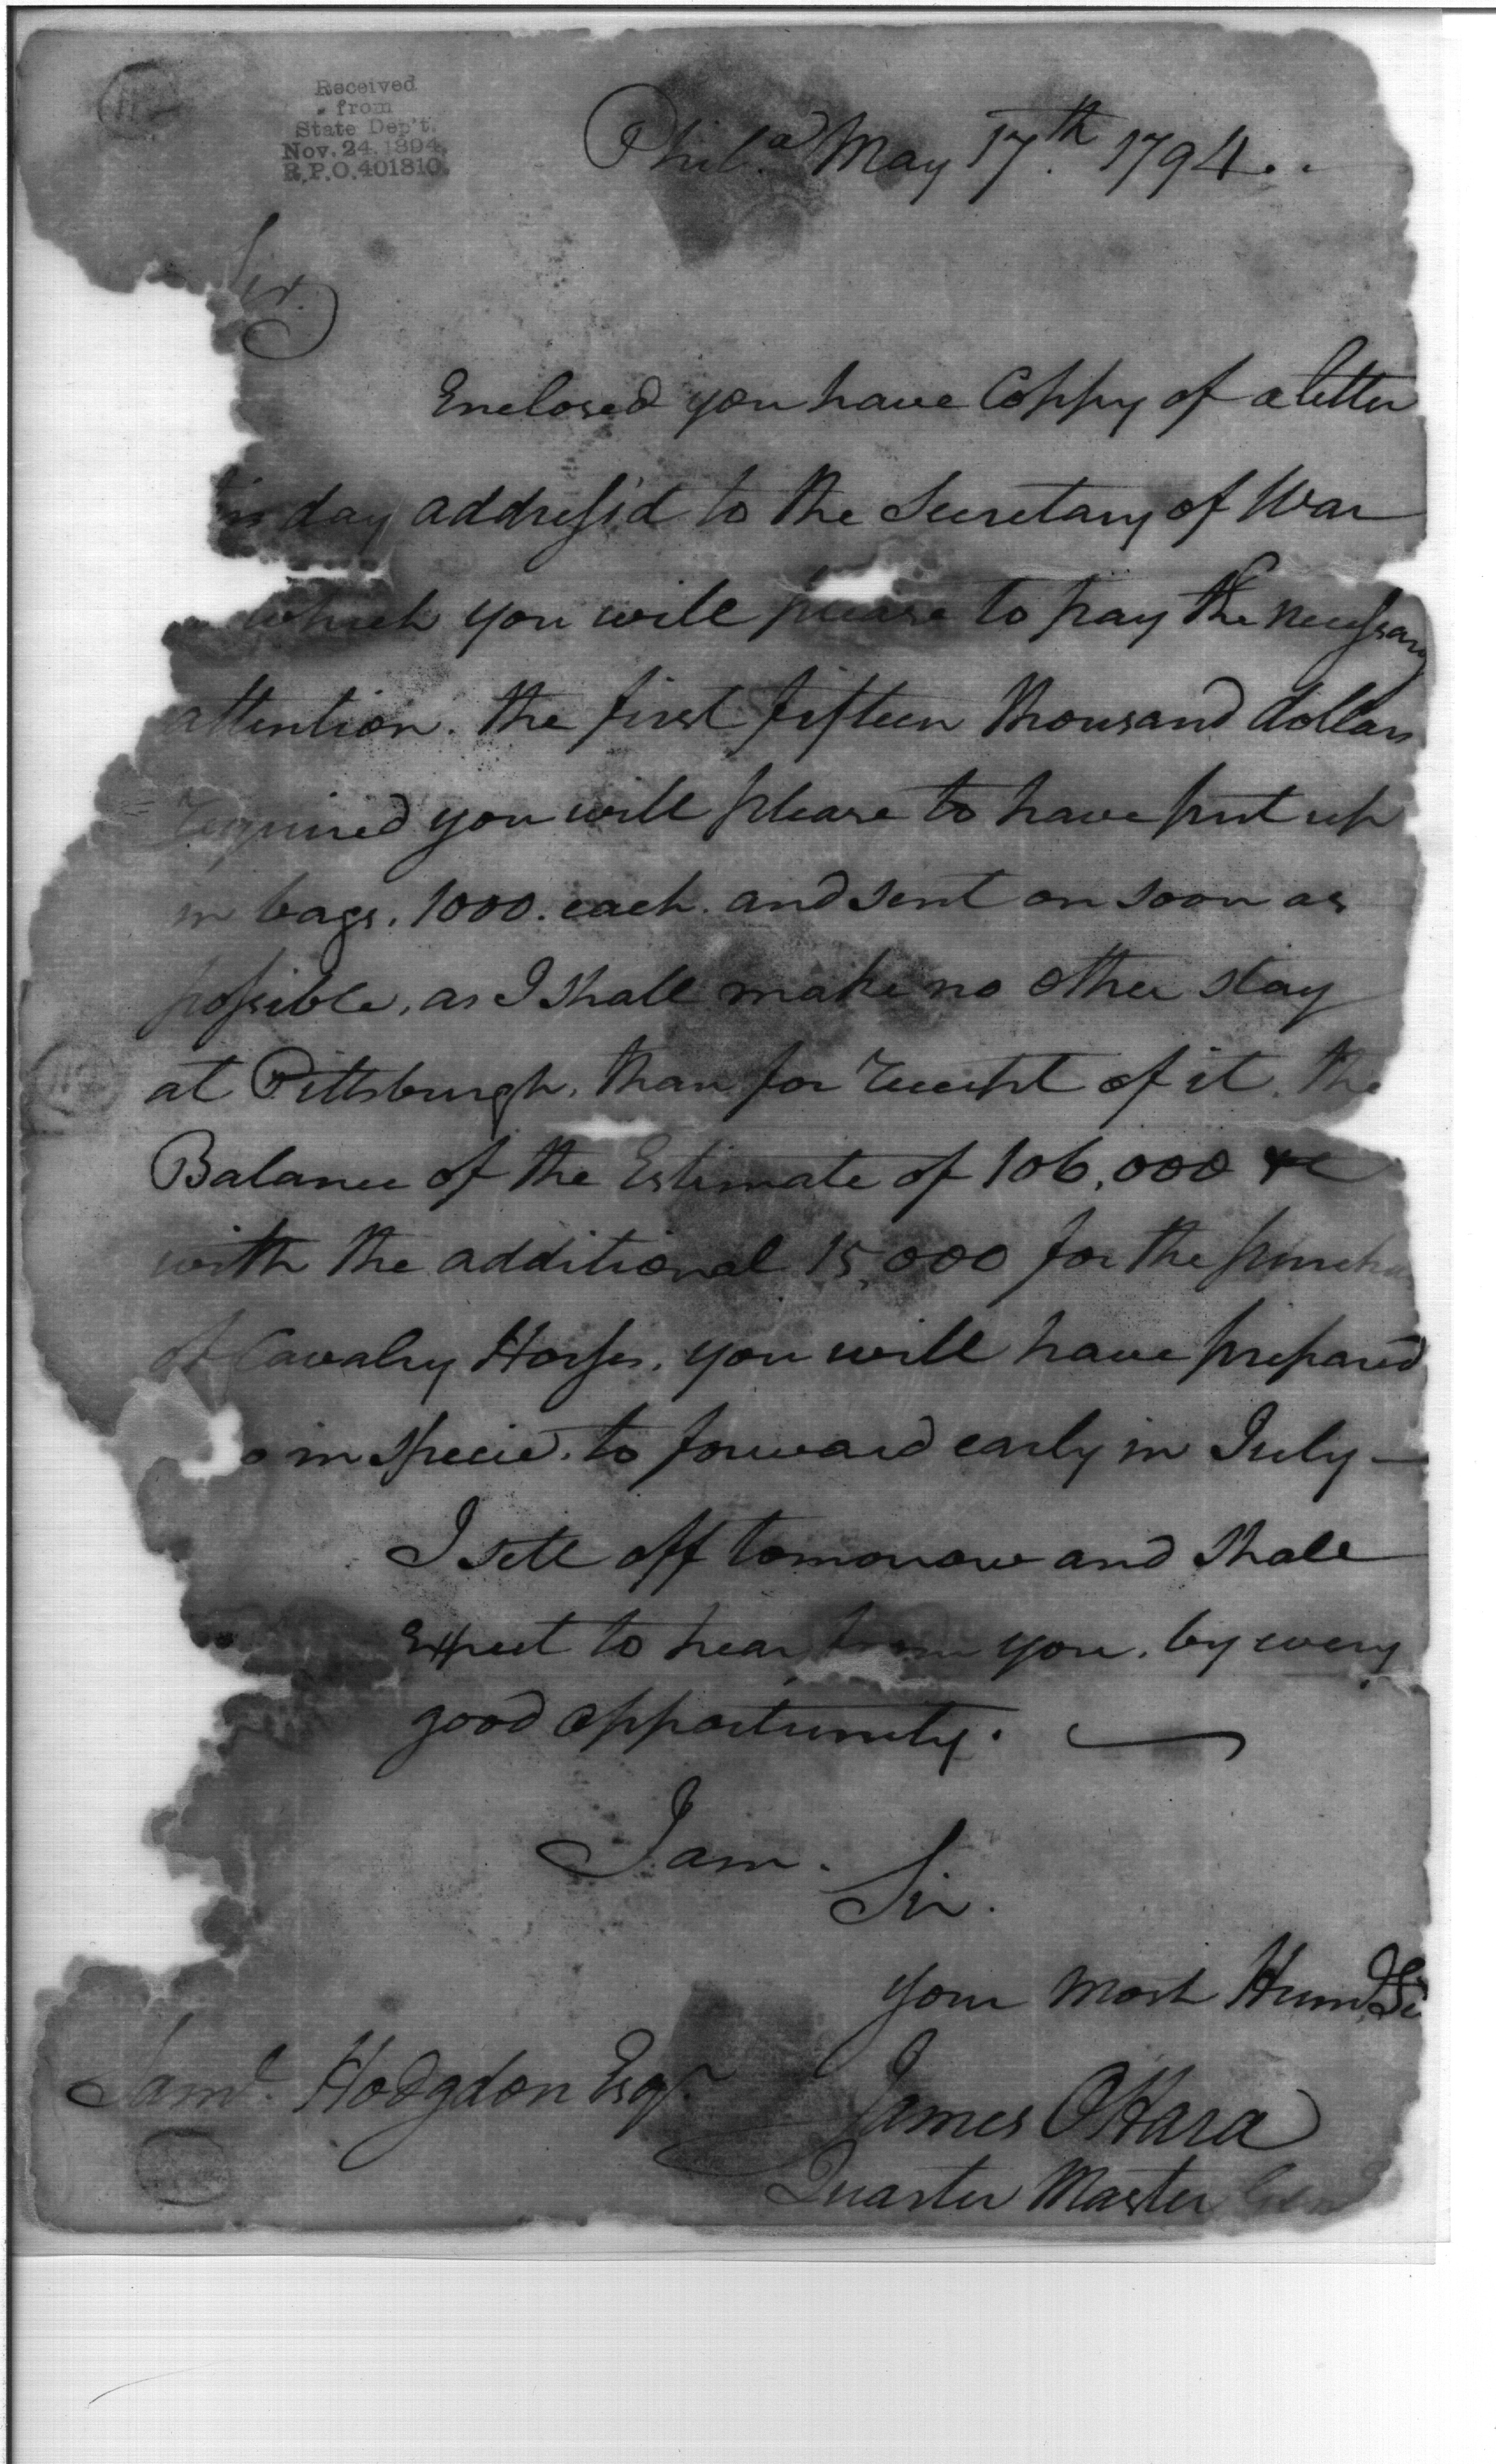 Received
from
State Dep't.
Nov. 24. 1894.
R.P.O. 401810.
Phila. May 17th. 1794..
Sir.
Enclosed you have Coppy of a letter
day address'd to the Secretary of War
which you will please to pay the necessary
attention. the first fifteen thousand dollars
required you will please to have put up
in bags. 1000. each. and sent on soon as
possible, as I shall make no other stay
at Pittsburgh, than for receipt of it. the
Balance of the Estimate of 106,000 &c
with the additional 15,000 for the purcha
of Cavalry Horses. you will have prepared
in specie. to forward early in July —
I sett off tomorrow and shall
Expect to hear from you. by every
good opportunity.
I am.
Sir.
your most Humb Se
Saml. Hodgdon Esqr.
James OHara
Quarter Master Gen